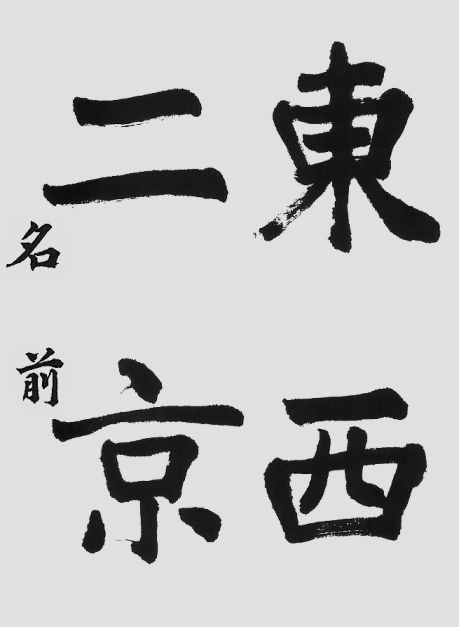 東西
二京
名前